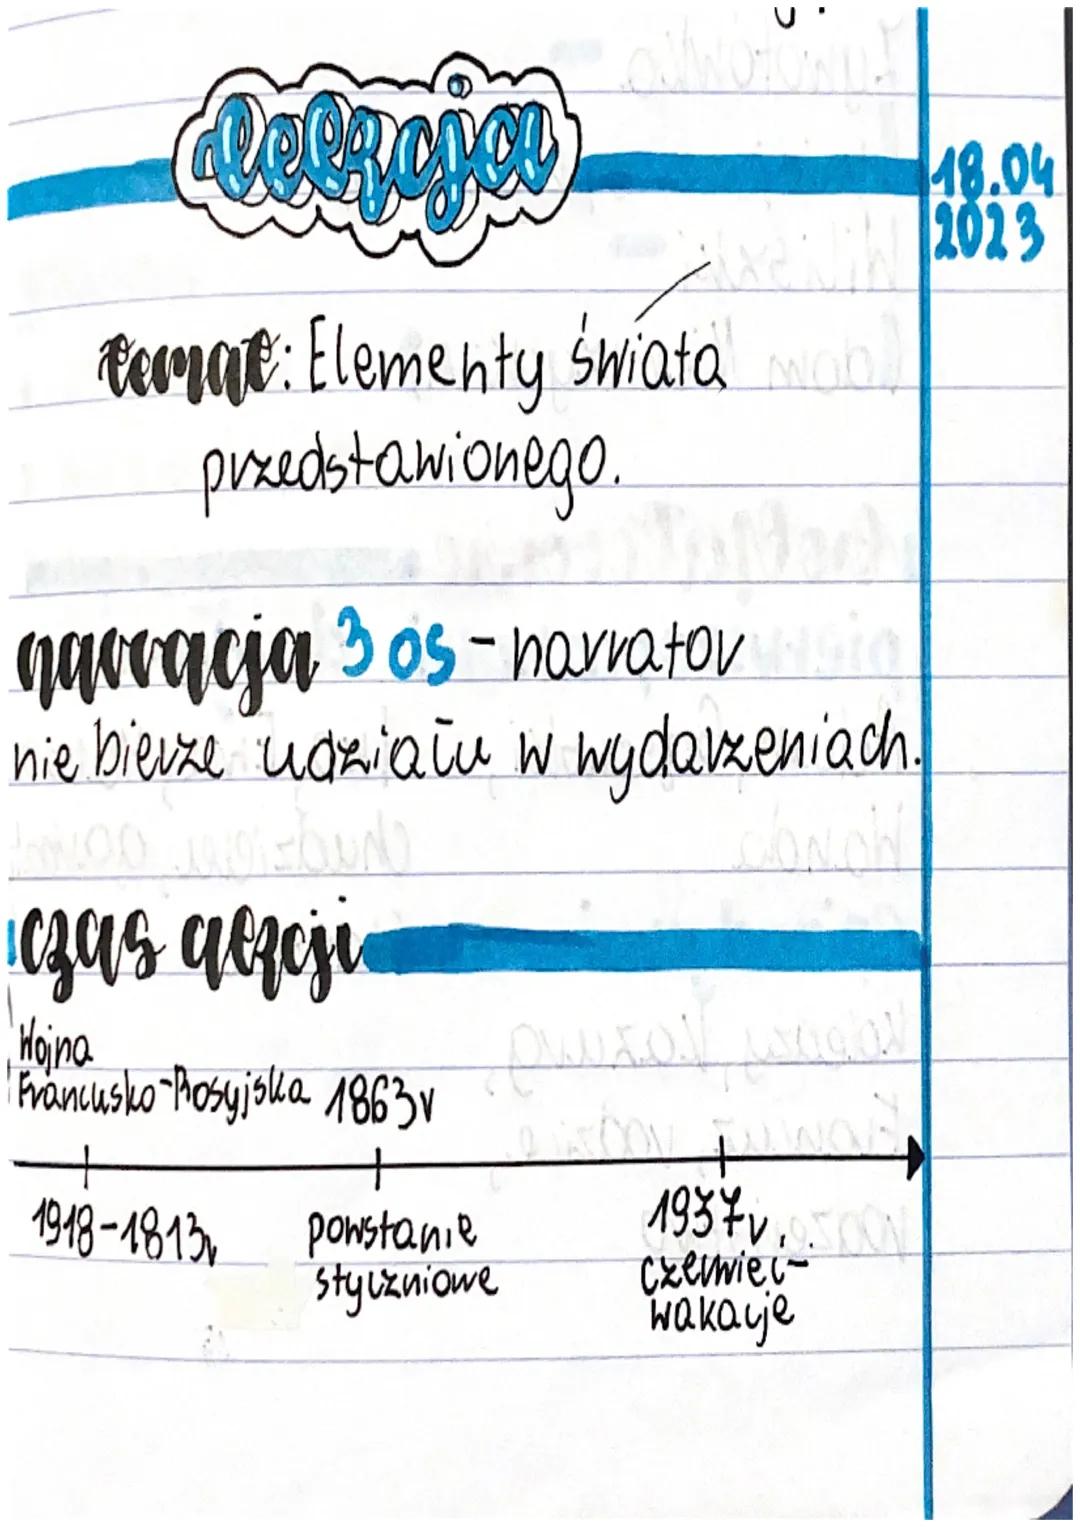 lekcja
18.04
2023
temat: Elementy świata
przedstawionego.
narracja 3 os - narrator
nie bierze udziału w wydarzeniach.
czas akcji
Wojna
Francusko-Rosyjska 1863r
1918-1813r
powstanie
styczniowe
1937r.
czerwiec-
wakacje